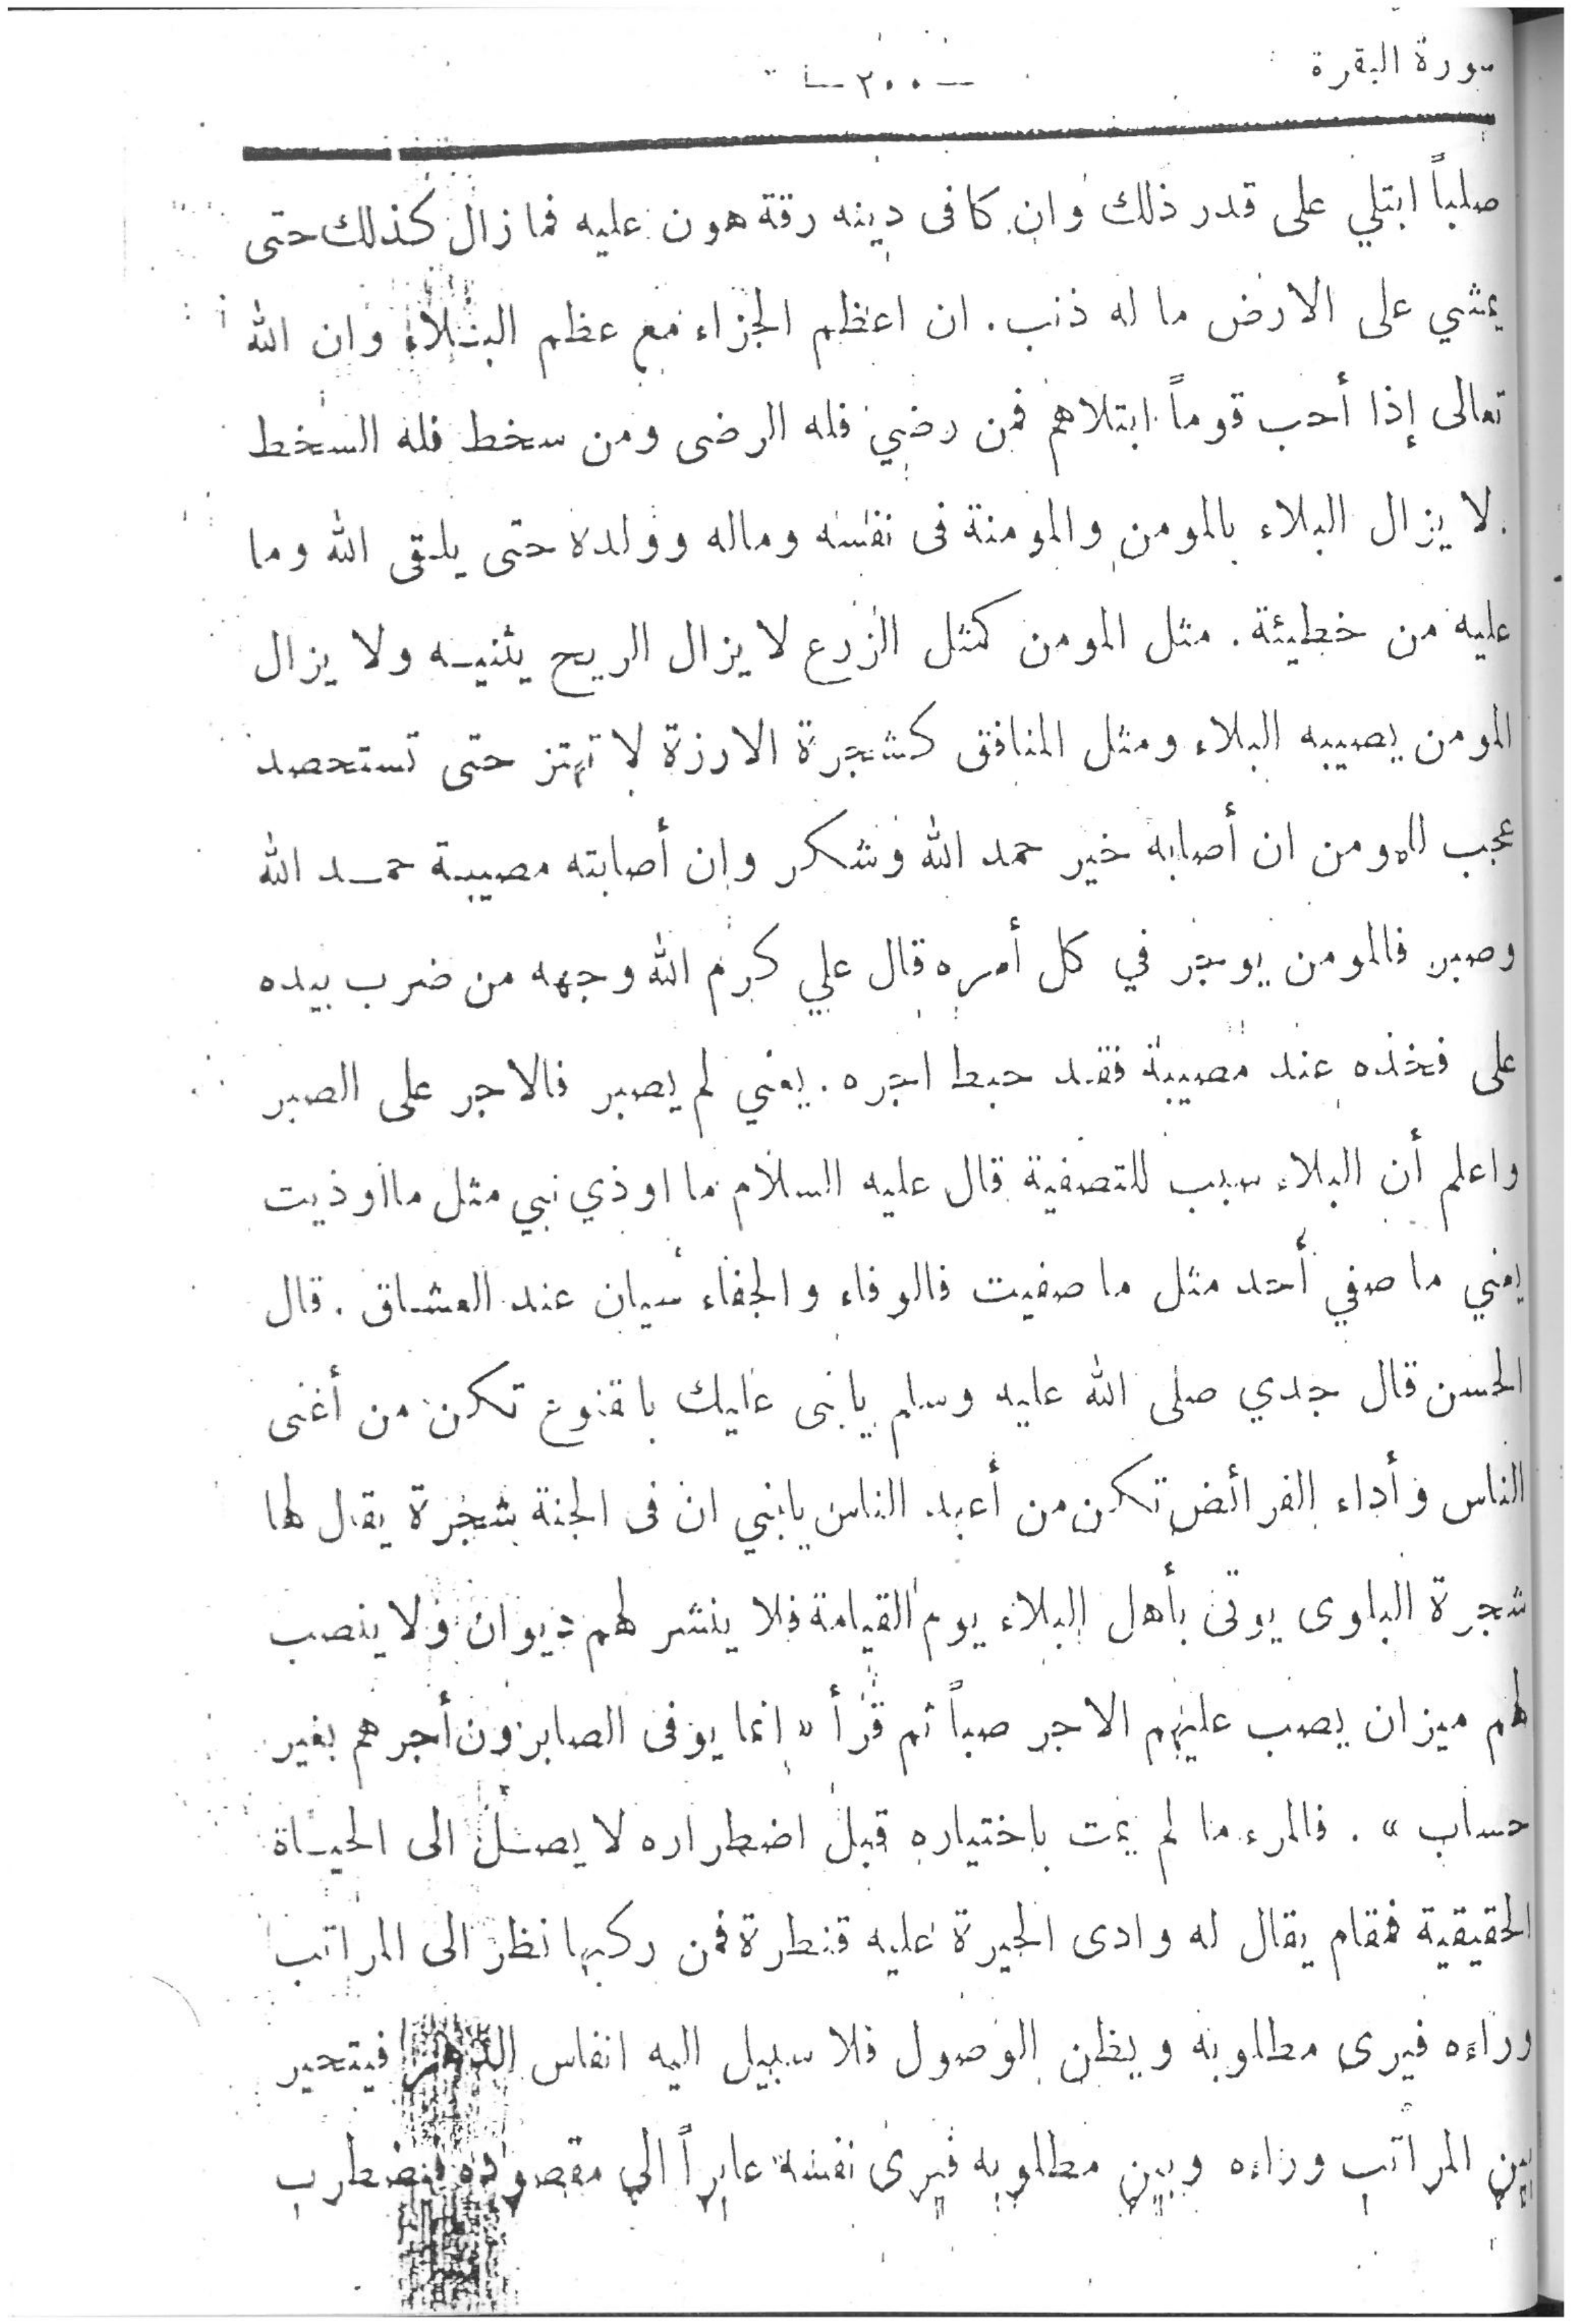 سورة البقرة
— ٢٠٠ —
صلباً ابتلي على قدر ذلك وان كافى دينه رقة هون عليه فما زال كذلك حتى
يمشي على الارض ما له ذنب . ان اعظم الجزاء مع عظم البلاء وان الله
تعالى إذا أحب قوماً ابتلاهم فمن رضي فله الرضى ومن سخط فله السخط
. لا يزال البلاء بالمومن والمومنة فى نفسه وماله وولده حتى يلقى الله وما
عليه من خطيئة . مثل المومن كمثل الزرع لا يزال الريح يثنيه ولا يزال
المومن يصيبه البلاء ومثل المنافق كشجرة الارزة لا تهتز حتى تستحصد
عجب للمومن ان أصابه خير حمد الله وشكر وإن أصابته مصيبة حمد الله
وصبر فالمومن يوجر في كل أمره قال علي كرم الله وجهه من ضرب بيده
على فخذه عند مصيبة فقد حبط اجره . يعني لم يصبر فالاجر على الصبر
واعلم أن البلاء سبب للتصفية قال عليه السلام ما اوذي نبي مثل ما اوذيت
يعني ما صفي أحد مثل ما صفيت فالوفاء والجفاء سيان عند العشاق . قال
الحسن قال جدي صلى الله عليه وسلم يابنى عليك باقنوع تكن من أغنى
الناس وأداء الفرائض تكن من أعبد الناس يابني ان فى الجنة شجرة يقال لها
شجرة البلوى يوتى بأهل البلاء يوم القيامة فلا ينشر لهم ديوان ولا ينصب
لهم ميزان يصب عليهم الاجر صباً ثم قرأ « إنما يوفى الصابرون أجرهم بغير
حساب » . فالمرء ما لم يمت باختياره قبل اضطراره لا يصل الى الحياة
الحقيقية فمقام يقال له وادى الحيرة عليه قنطرة فمن ركبها نظر الى المراتب
وراءه فيرى مطلوبه ويظن الوصول فلا سبيل اليه انفاس الدهر فيتحير
بين المراتب وراءه وبين مطلوبه فيرى نفسه عابراً الى مقصوده فيضطرب